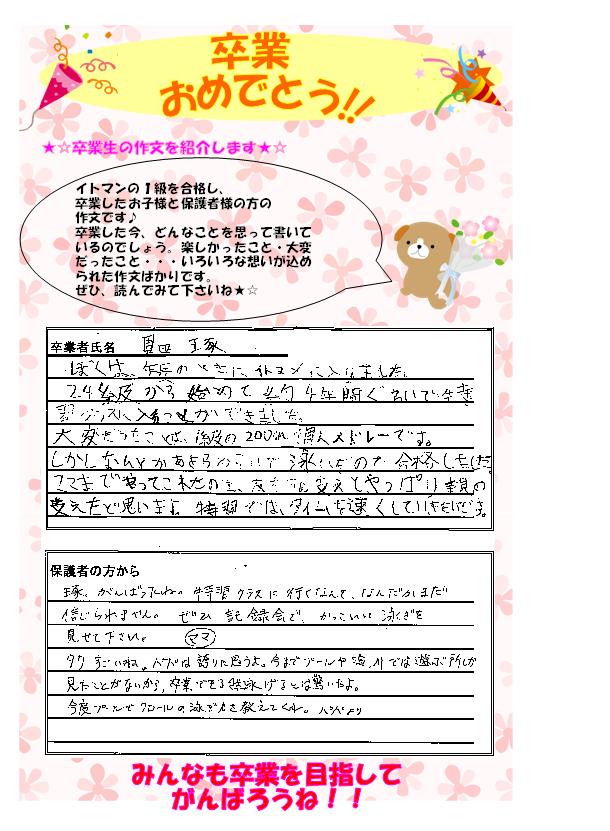 卒業
おめでとう!!
★☆卒業生の作文を紹介します★☆
イトマンの１級を合格し、
卒業したお子様と保護者様の方の
作文です♪
卒業した今、どんなことを思って書いて
いるのでしょう。楽しかったこと・大変
だったこと・・・いろいろな想いが込め
られた作文ばかりです。
ぜひ、読んでみて下さいね★☆
卒業者氏名
ぼくは、年長のときに、イトマンに入りました。
から始めて 4年間ぐらいで卒業
クラスに入ることができました。
大変だったことは、 200m個人メドレーです。
しかしなんとかあきらめないで泳いだので合格しました。
ここまでやってこれたのも、 支えてやっぱり親の
支えだと思います。特習では、タイムを速くしていきたいです。
保護者の方から
がんばったね。特習クラスに行くなんて、なんだかまだ
信じられません。ぜひ記録会で、かっこいい泳ぎを
見せて下さい。 ママ
すごいね。パパは誇りに思うよ。今までプールや海、川では遊ぶ所しか
見たことがないから、卒業できる程泳げるとは驚いたよ。
今度プールでクロールの泳ぎ方を教えてくれ。パパより
みんなも卒業を目指して
がんばろうね！！